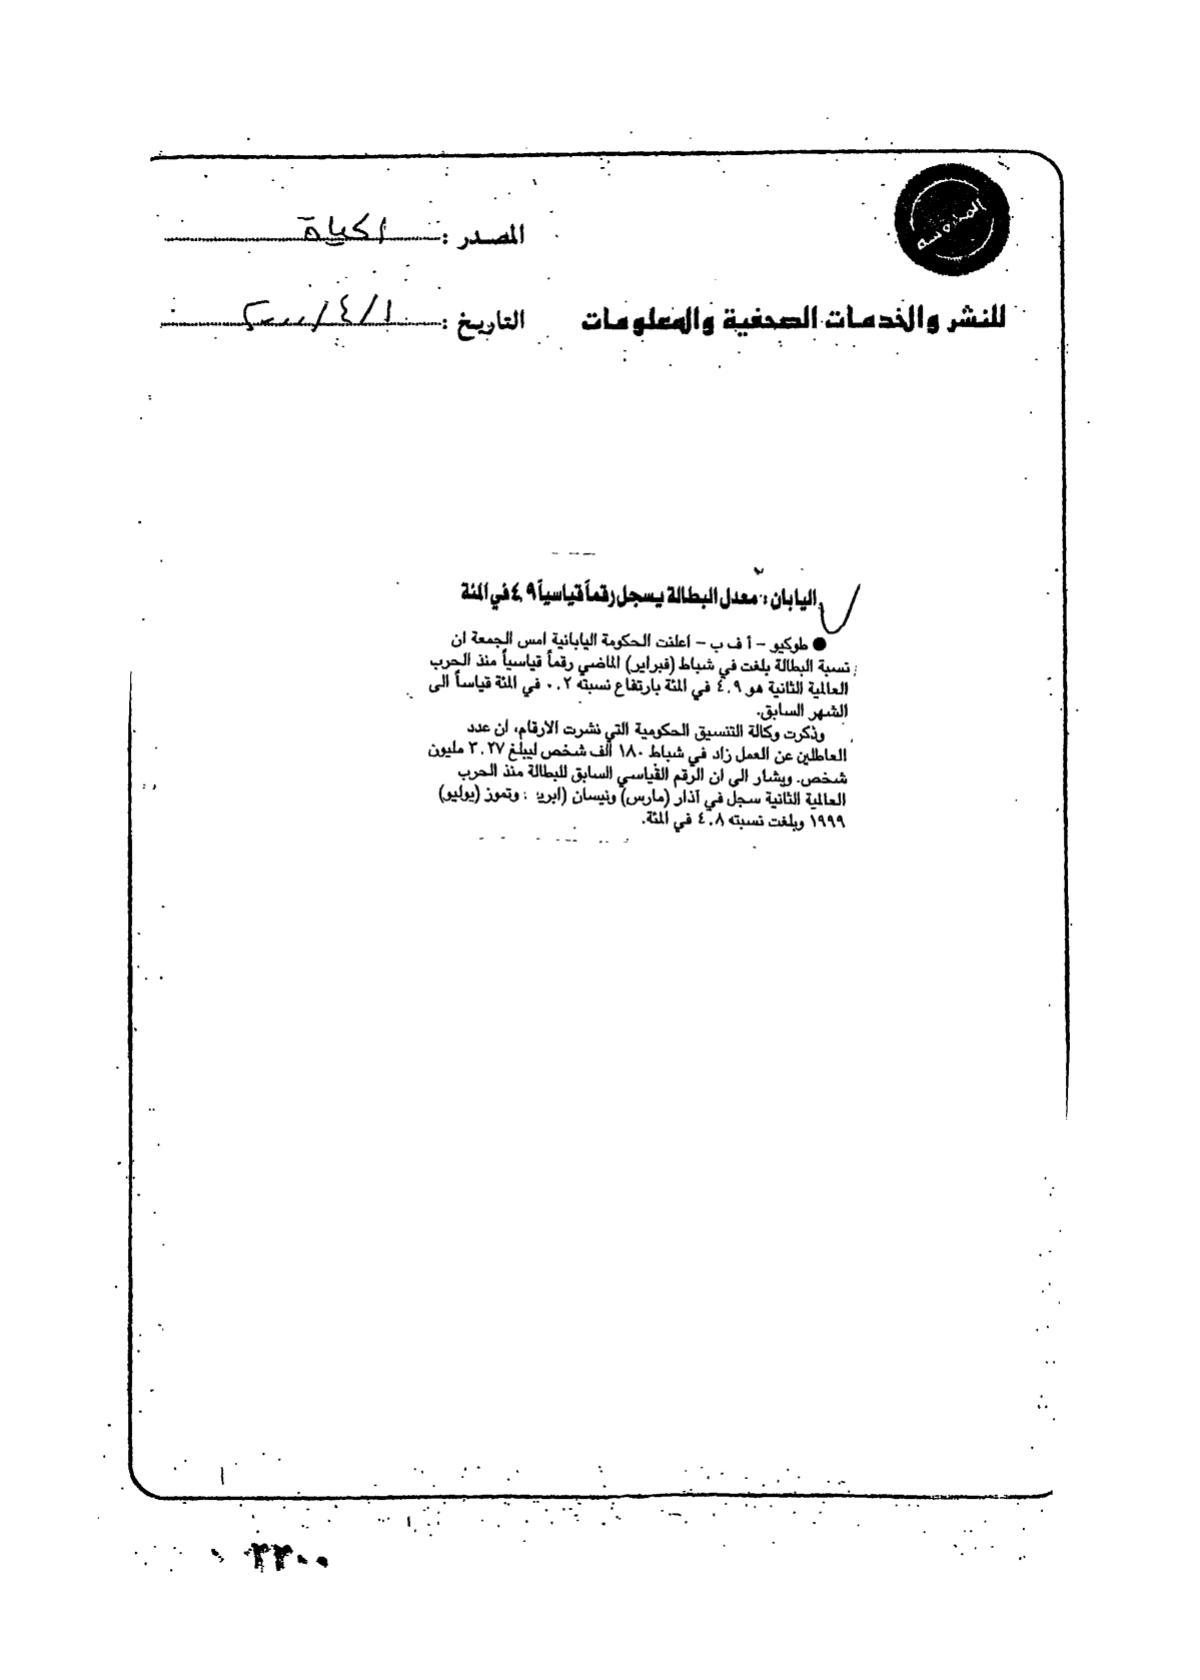 المصدر : الحياة
للنشر والخدمات الصحفية والمعلومات
التاريخ : ١/٤/٢٠٠٠
اليابان : معدل البطالة يسجل رقماً قياسياً ٤,٩ في المئة
● طوكيو - أ ف ب - اعلنت الحكومة اليابانية امس الجمعة ان
نسبة البطالة بلغت في شباط (فبراير) الماضي رقماً قياسياً منذ الحرب
العالمية الثانية هو ٤,٩ في المئة بارتفاع نسبته ٠,٢ في المئة قياساً الى
الشهر السابق.
وذكرت وكالة التنسيق الحكومية التي نشرت الارقام، ان عدد
العاطلين عن العمل زاد في شباط ١٨٠ ألف شخص ليبلغ ٣,٢٧ مليون
شخص. ويشار الى ان الرقم القياسي السابق للبطالة منذ الحرب
العالمية الثانية سجل في آذار (مارس) ونيسان (ابري وتموز (يوليو)
١٩٩٩ وبلغت نسبته ٤,٨ في المئة.